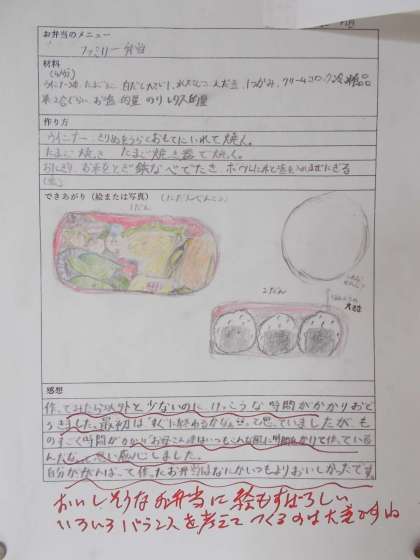 お弁当のメニュー
ファミリー弁当
材料
(4人分)
ウインナー たまご 白だし 枝豆 クリームコロッケ 冷凍食品
米2合ぐらい お塩 適量 のり
作り方
ウインナー きりめをうらとおもてにいれて焼く。
たまご焼き たまご焼き器で焼く。
おにぎり お米をとぎ鉄なべでたき、ボウルに
できあがり（絵または写真）
1だん
2だん
感想
作ってみたら以外と少ないのに、けっこうな時間がかかりおど
ろきました。最初は「すぐに終わるかなぁ」って思っていましたが、も
のすごく時間がかかり お母さん達はいつもこんな風に時間をかけて作っている
んだなって思い感心しました。
自分ががんばって作ったお弁当はなんかいつもよりおいしかったです。
おいしそうなお弁当に絵もすばらしい
いろいろバランスを考えてつくるのは大変ですね